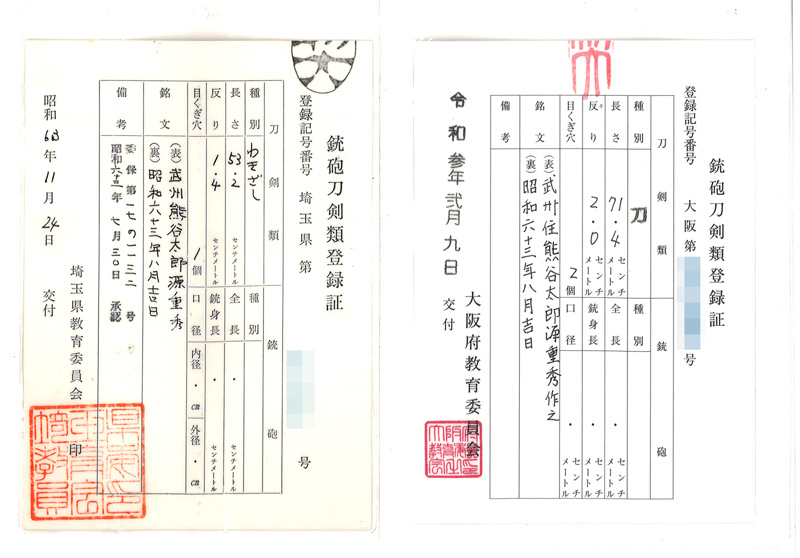 銃砲刀剣類登録証
登録記号番号 埼玉県 第 号
刀剣類 銃砲
種別 わきざし 種別
長さ 53.2 センチメートル 全長 ・ センチメートル
反り 1.4 センチメートル 銃身長 ・ センチメートル
目くぎ穴 1個 口径 内径 ・ cm 外径 ・ cm
銘文 (表) 武州熊谷太郎源重秀
(裏) 昭和六十三年八月吉日
備考 委保第一七の一一三二号
昭和六十三年七月三〇日 承認
埼玉県教育委員会 印
昭和63年11月24日 交付
銃砲刀剣類登録証
登録記号番号 大阪第 号
刀剣類 銃砲
種別 刀 種別
長さ 71.4 センチメートル 全長 ・ センチメートル
反り 2.0 センチメートル 銃身長 ・ センチメートル
目くぎ穴 2個 口径 ・ センチメートル
銘文 (表) 武州住熊谷太郎源重秀作之
(裏) 昭和六十三年八月吉日
備考
大阪府教育委員会
令和参年弐月九日 交付